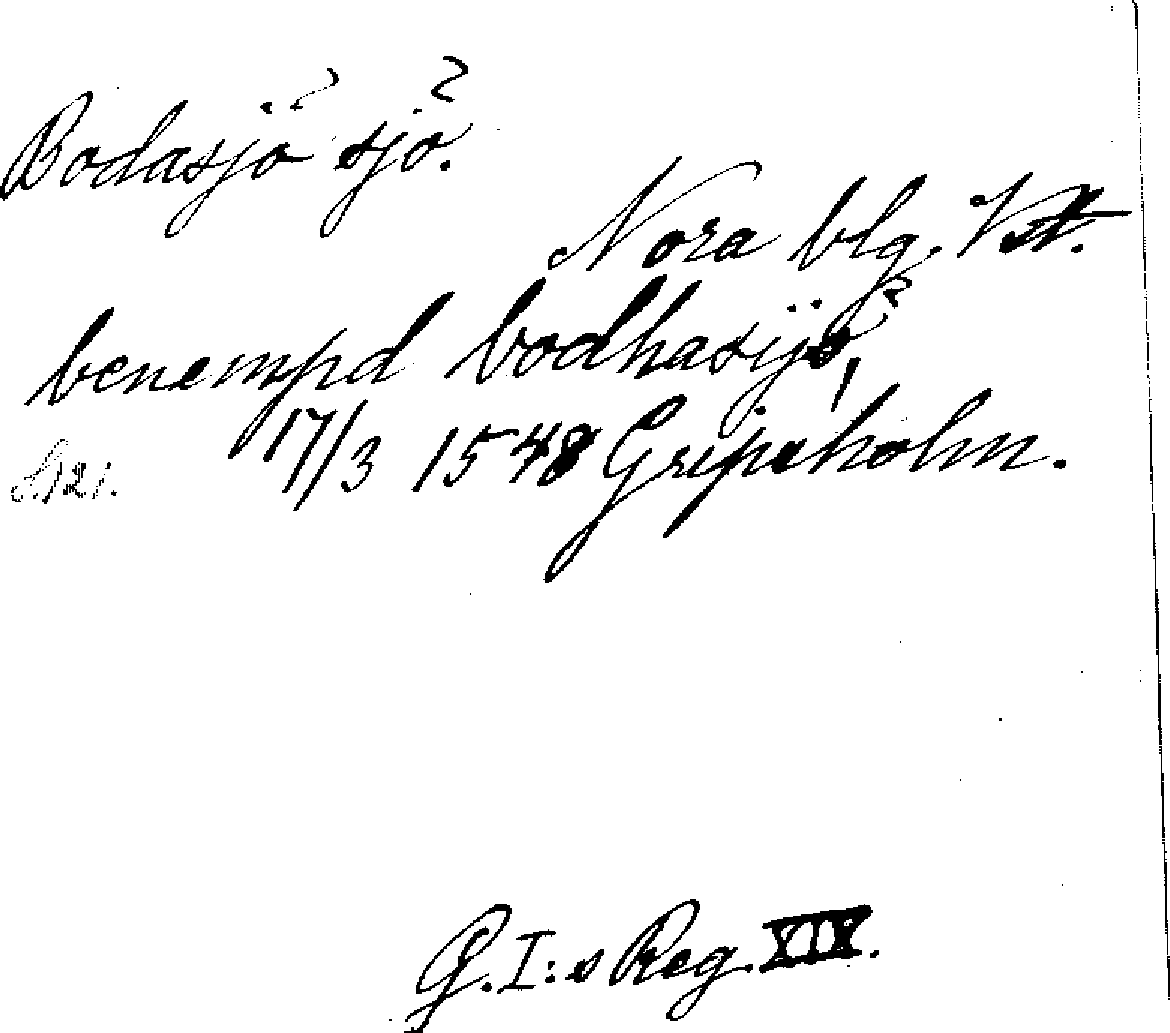 Bodasjö sjö.
Nora blg. Vstm.
benempd bodhasijö,
17/3 1548 Gripsholm.
S. 121.
G. I:s Reg. XIX.